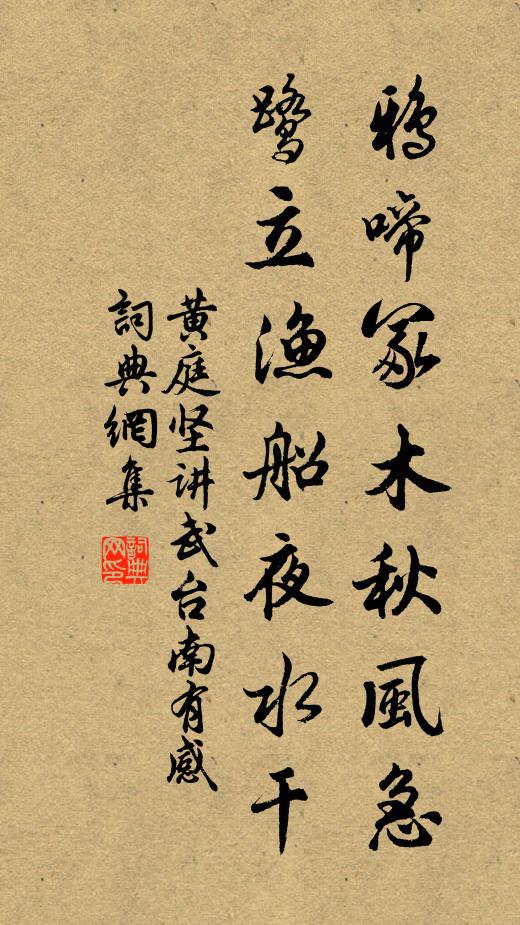 鴉啼冢木秋風急
鷺立漁船夜水干
黄庭坚讲武台南有感
詞典網集
詞典网印